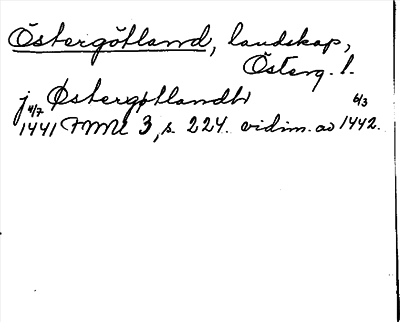 Östergötland, landskap,
Österg. l.
j Østergøtlandh
4/7 1441 FMU 3, s. 224. vidim. av 6/3 1442.